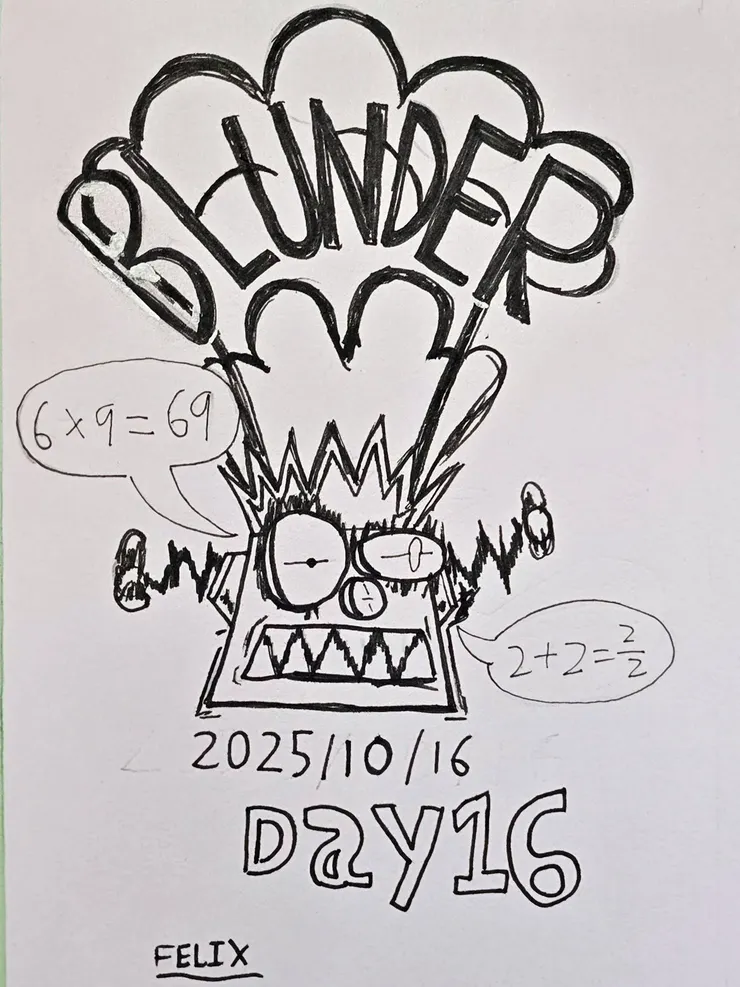 BLUNDER
6 x 9 = 69
2+2=2/2
2025/10/16
Day16
FELIX